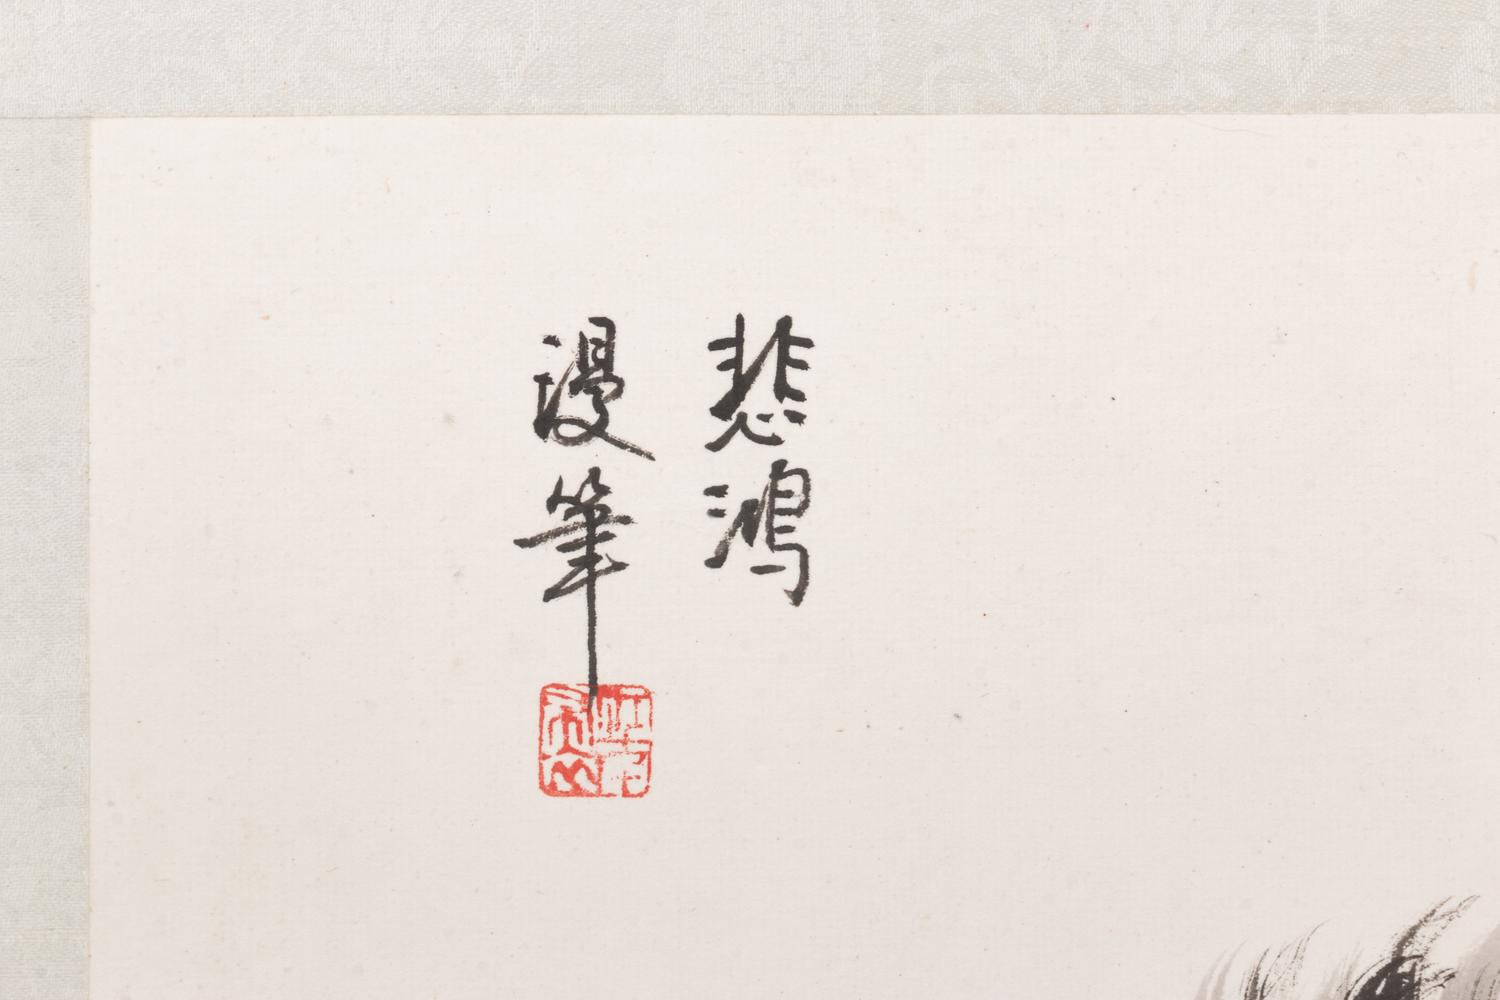 悲鴻
漫筆